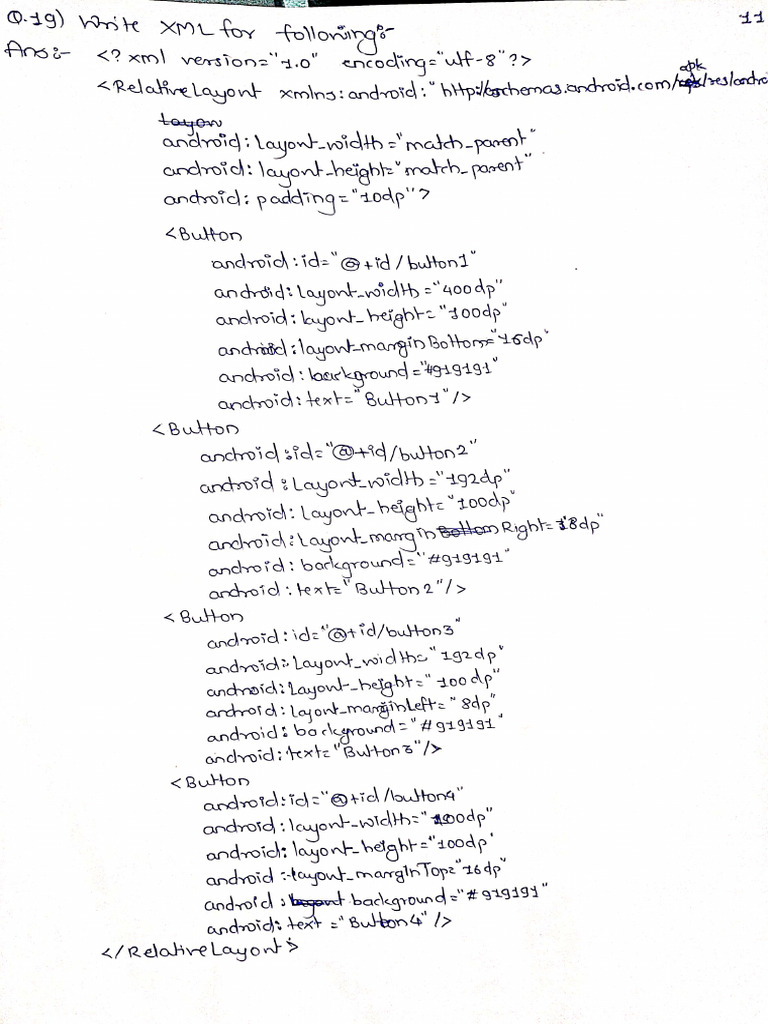 Q.19) Write XML for following:-
11
Ans:- <?xml version="1.0" encoding="utf-8"?>
<RelativeLayout xmlns:android:"http://schemas.android.com/apk/res/andro
android:layout_width="match_parent"
android:layout_height="match_parent"
android:padding="10dp">
<Button
android:id="@+id/button1"
android:layout_width="400dp"
android:layout_height="100dp"
android:layout_marginBottom="16dp"
android:background="#919191"
android:text="Button1"/>
<Button
android:id="@+id/button2"
android:Layout_width="192dp"
android:Layout_height="100dp"
android:Layout_marginRight="8dp"
android:background="#919191"
android:text="Button2"/>
<Button
android:id="@+id/button3"
android:Layout_width="192dp"
android:Layout_height="100dp"
android:Layout_marginLeft="8dp"
android:background="#919191"
android:text="Button3"/>
<Button
android:id="@+id/button4"
android:layout_width="100dp"
android:layout_height="100dp"
android:layout_marginTop="16dp"
android:background="#919191"
android:text="Button4"/>
</RelativeLayout>